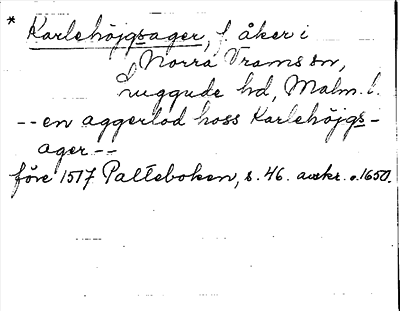 * Karlehöjgsager, f. åker i
Norra Vrams sn,
Luggude hd, Malm. l.
-- en aggerlod hoss Karlehöjgs-
ager --
före 1517 Palteboken, s. 46. avskr. o. 1650.